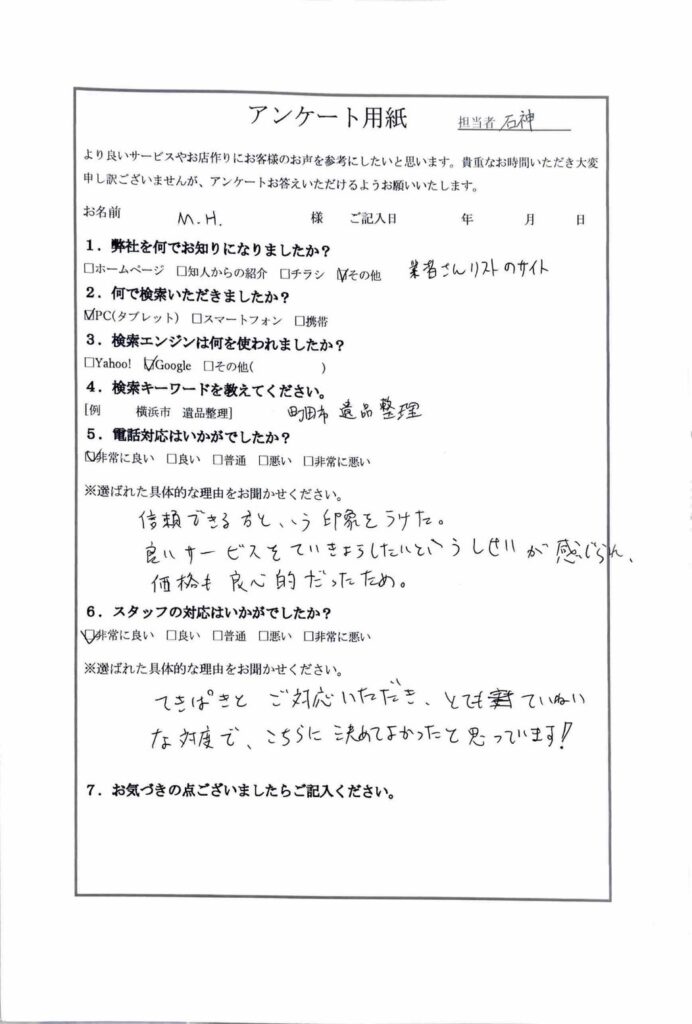 アンケート用紙 担当者 石神
より良いサービスやお店作りにお客様のお声を参考にしたいと思います。貴重なお時間いただき大変
申し訳ございませんが、アンケートお答えいただけるようお願いいたします。
お名前 M.H. 様 ご記入日 年 月 日
1．弊社を何でお知りになりましたか？
□ホームページ □知人からの紹介 □チラシ ☑その他 業者さんリストのサイト
2．何で検索いただきましたか？
☑PC(タブレット) □スマートフォン □携帯
3．検索エンジンは何を使われましたか？
□Yahoo! ☑Google □その他( )
4．検索キーワードを教えてください。
[例 横浜市 遺品整理] 町田市 遺品整理
5．電話対応はいかがでしたか？
☑非常に良い □良い □普通 □悪い □非常に悪い
※選ばれた具体的な理由をお聞かせください。
信頼できる方という印象をうけた。
良いサービスをていきょうしたいというしせいが感じられ、
価格も良心的だったため。
6．スタッフの対応はいかがでしたか？
☑非常に良い □良い □普通 □悪い □非常に悪い
※選ばれた具体的な理由をお聞かせください。
てきぱきとご対応いただき、とても ていねい
な対度で、こちらに決めてよかったと思っています！
7．お気づきの点ございましたらご記入ください。